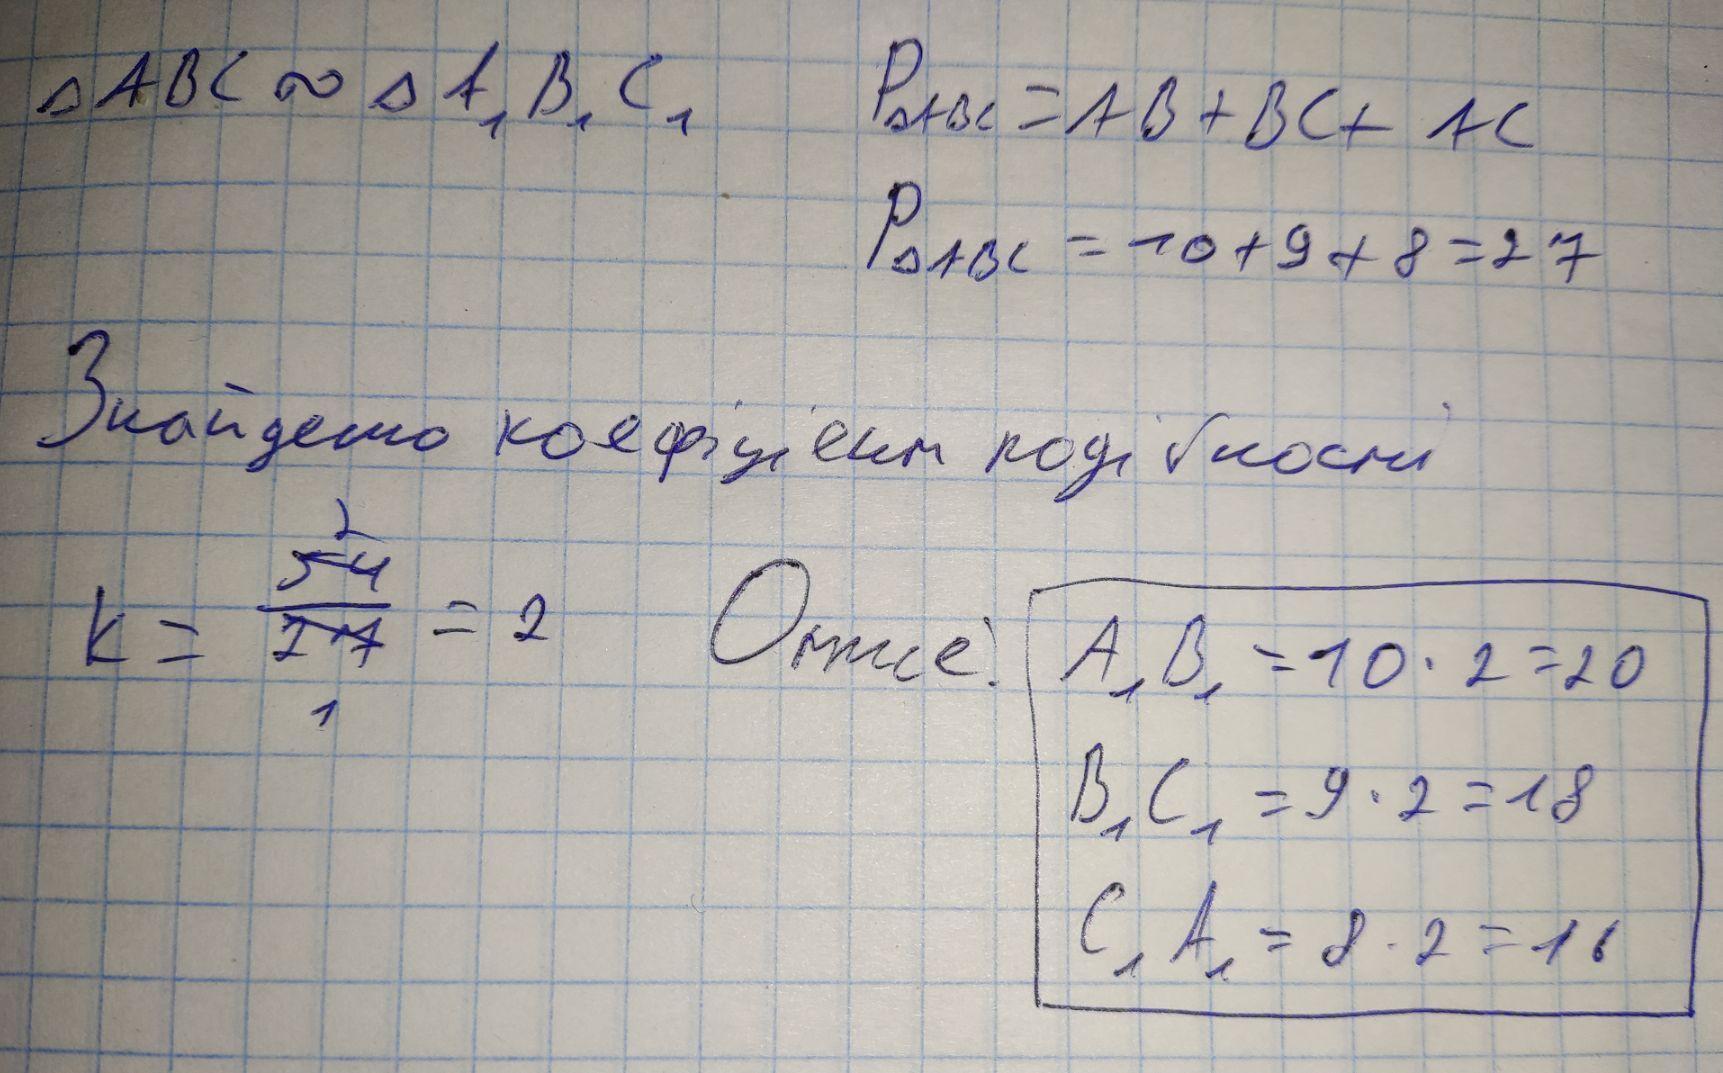 △ABC ∾ △A₁B₁C₁
P△ABC = AB + BC + AC
P△ABC = 10 + 9 + 8 = 27
Знайдемо коефіцієнт подібності
k = 54/27 = 2
2
1
Отже:
A₁B₁ = 10 · 2 = 20
B₁C₁ = 9 · 2 = 18
C₁A₁ = 8 · 2 = 16